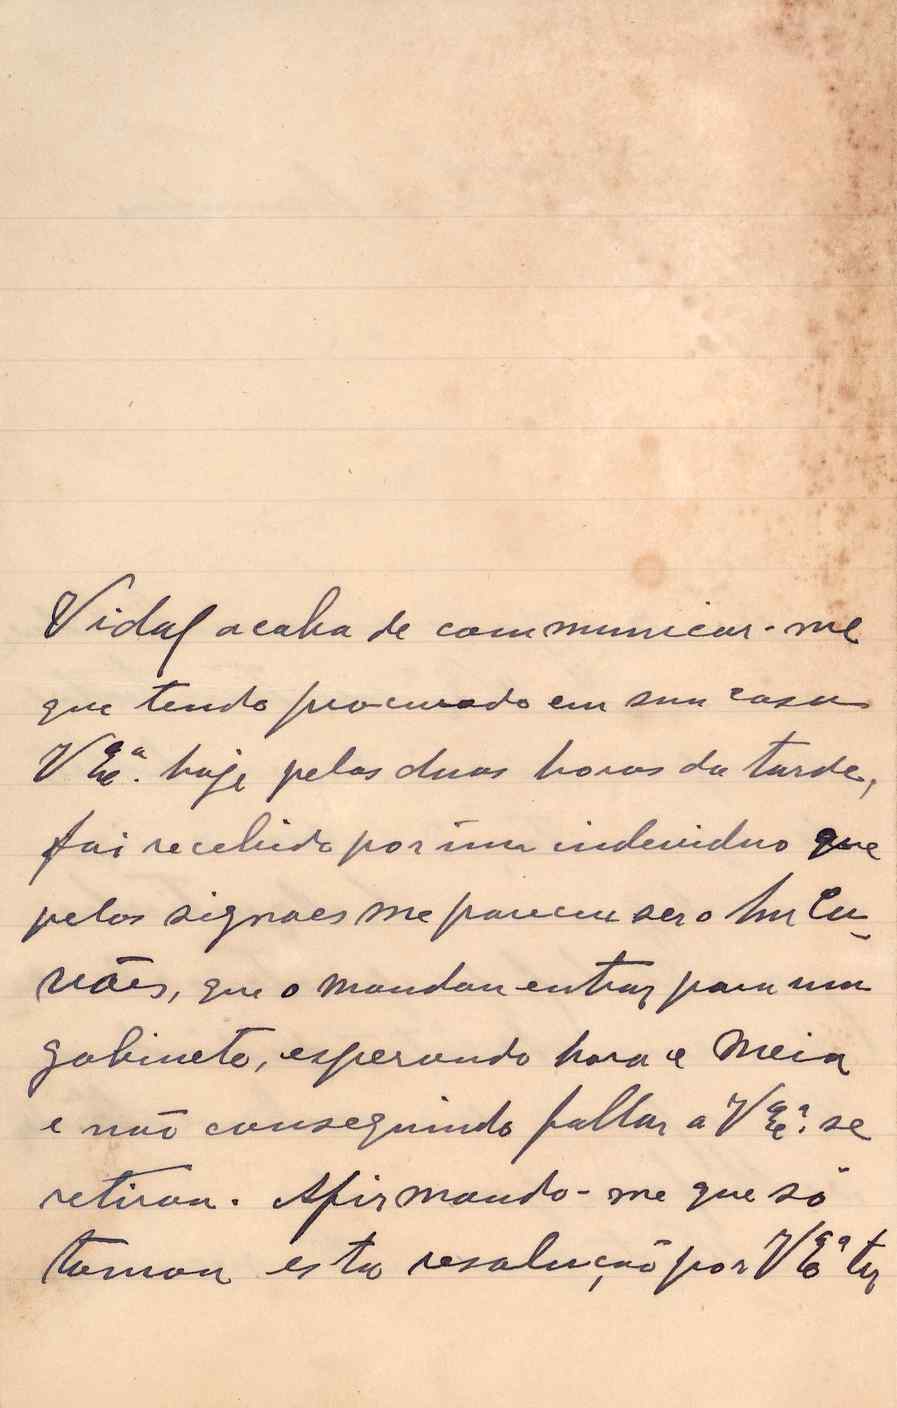 Vidal acaba de communicar-me
que tendo procurado em sua casa
V Exª. hoje pelas duas horas da tarde,
foi recebido por um individuo que
pelos signaes me pareceu ser o
que o mandou entrar para um
gabinete, esperando hora e meia
e não conseguindo fallar a V Exª. se
retirou. Afirmando-me que só
tomou esta resolução por V Exª ter